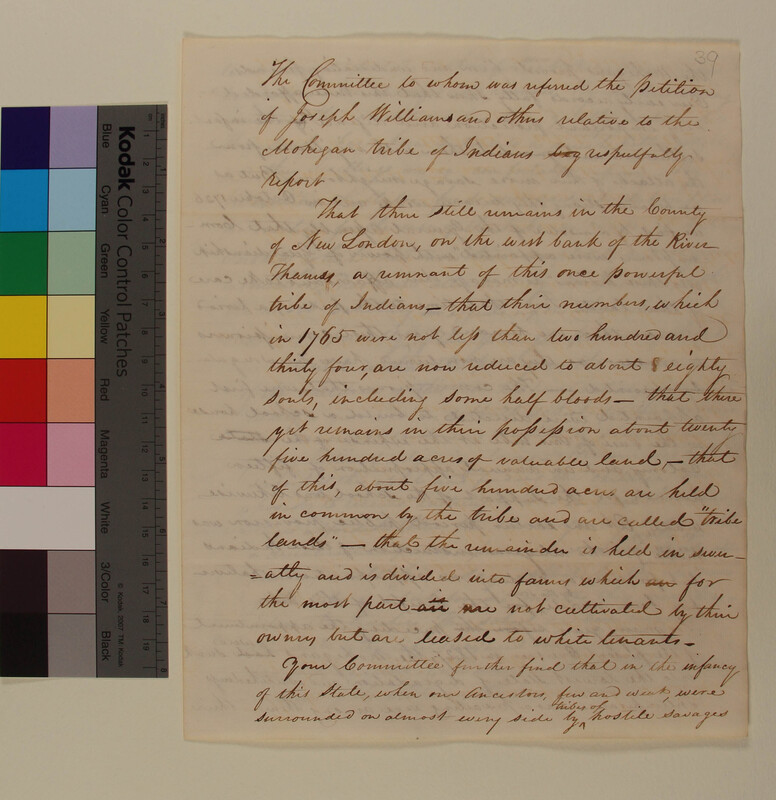 39
The Committee to whom was referred the Petition
of Joseph Williams and others relative to the
Mohegan tribe of Indians beg respectfully
report
That there still remains in the County
of New London, on the west bank of the River
Thames, a remnant of this once powerful
tribe of Indians — that their numbers, which
in 1765 were not less than two hundred and
thirty four, are now reduced to about eighty
souls, including some half bloods — that there
yet remains in their possession about twenty
five hundred acres of valuable land, — that
of this, about five hundred acres are held
in common by the tribe and are called "tribe
lands" — that the remainder is held in sever-
=alty and is divided into farms which are for
the most part are not cultivated by their
owners but are leased to white tenants —
Your Committee further find that in the infancy
of this State, when our Ancestors, few and weak, were
surrounded on almost every side by tribes of hostile savages
Kodak Color Control Patches
Blue
Cyan
Green
Yellow
Red
Magenta
White
3/Color
Black
© Kodak, 2007 TM: Kodak
1
2
3
4
5
6
7
8
9
10
11
12
13
14
15
16
17
18
19